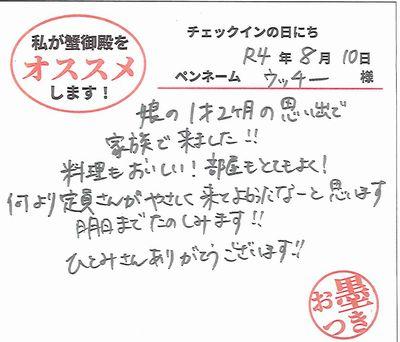 私が蟹御殿を
オススメ
します！
チェックインの日にち
R4年8月10日
ペンネーム ウッチー 様
娘の1才2ヶ月の思い出で
家族で来ました!!
料理もおいしい！部屋もとてもよく！
何より定員さんがやさしく来てよかったなーと思います
明日までたのしみます!!
ひとみさんありがとうございます!!
お墨つき